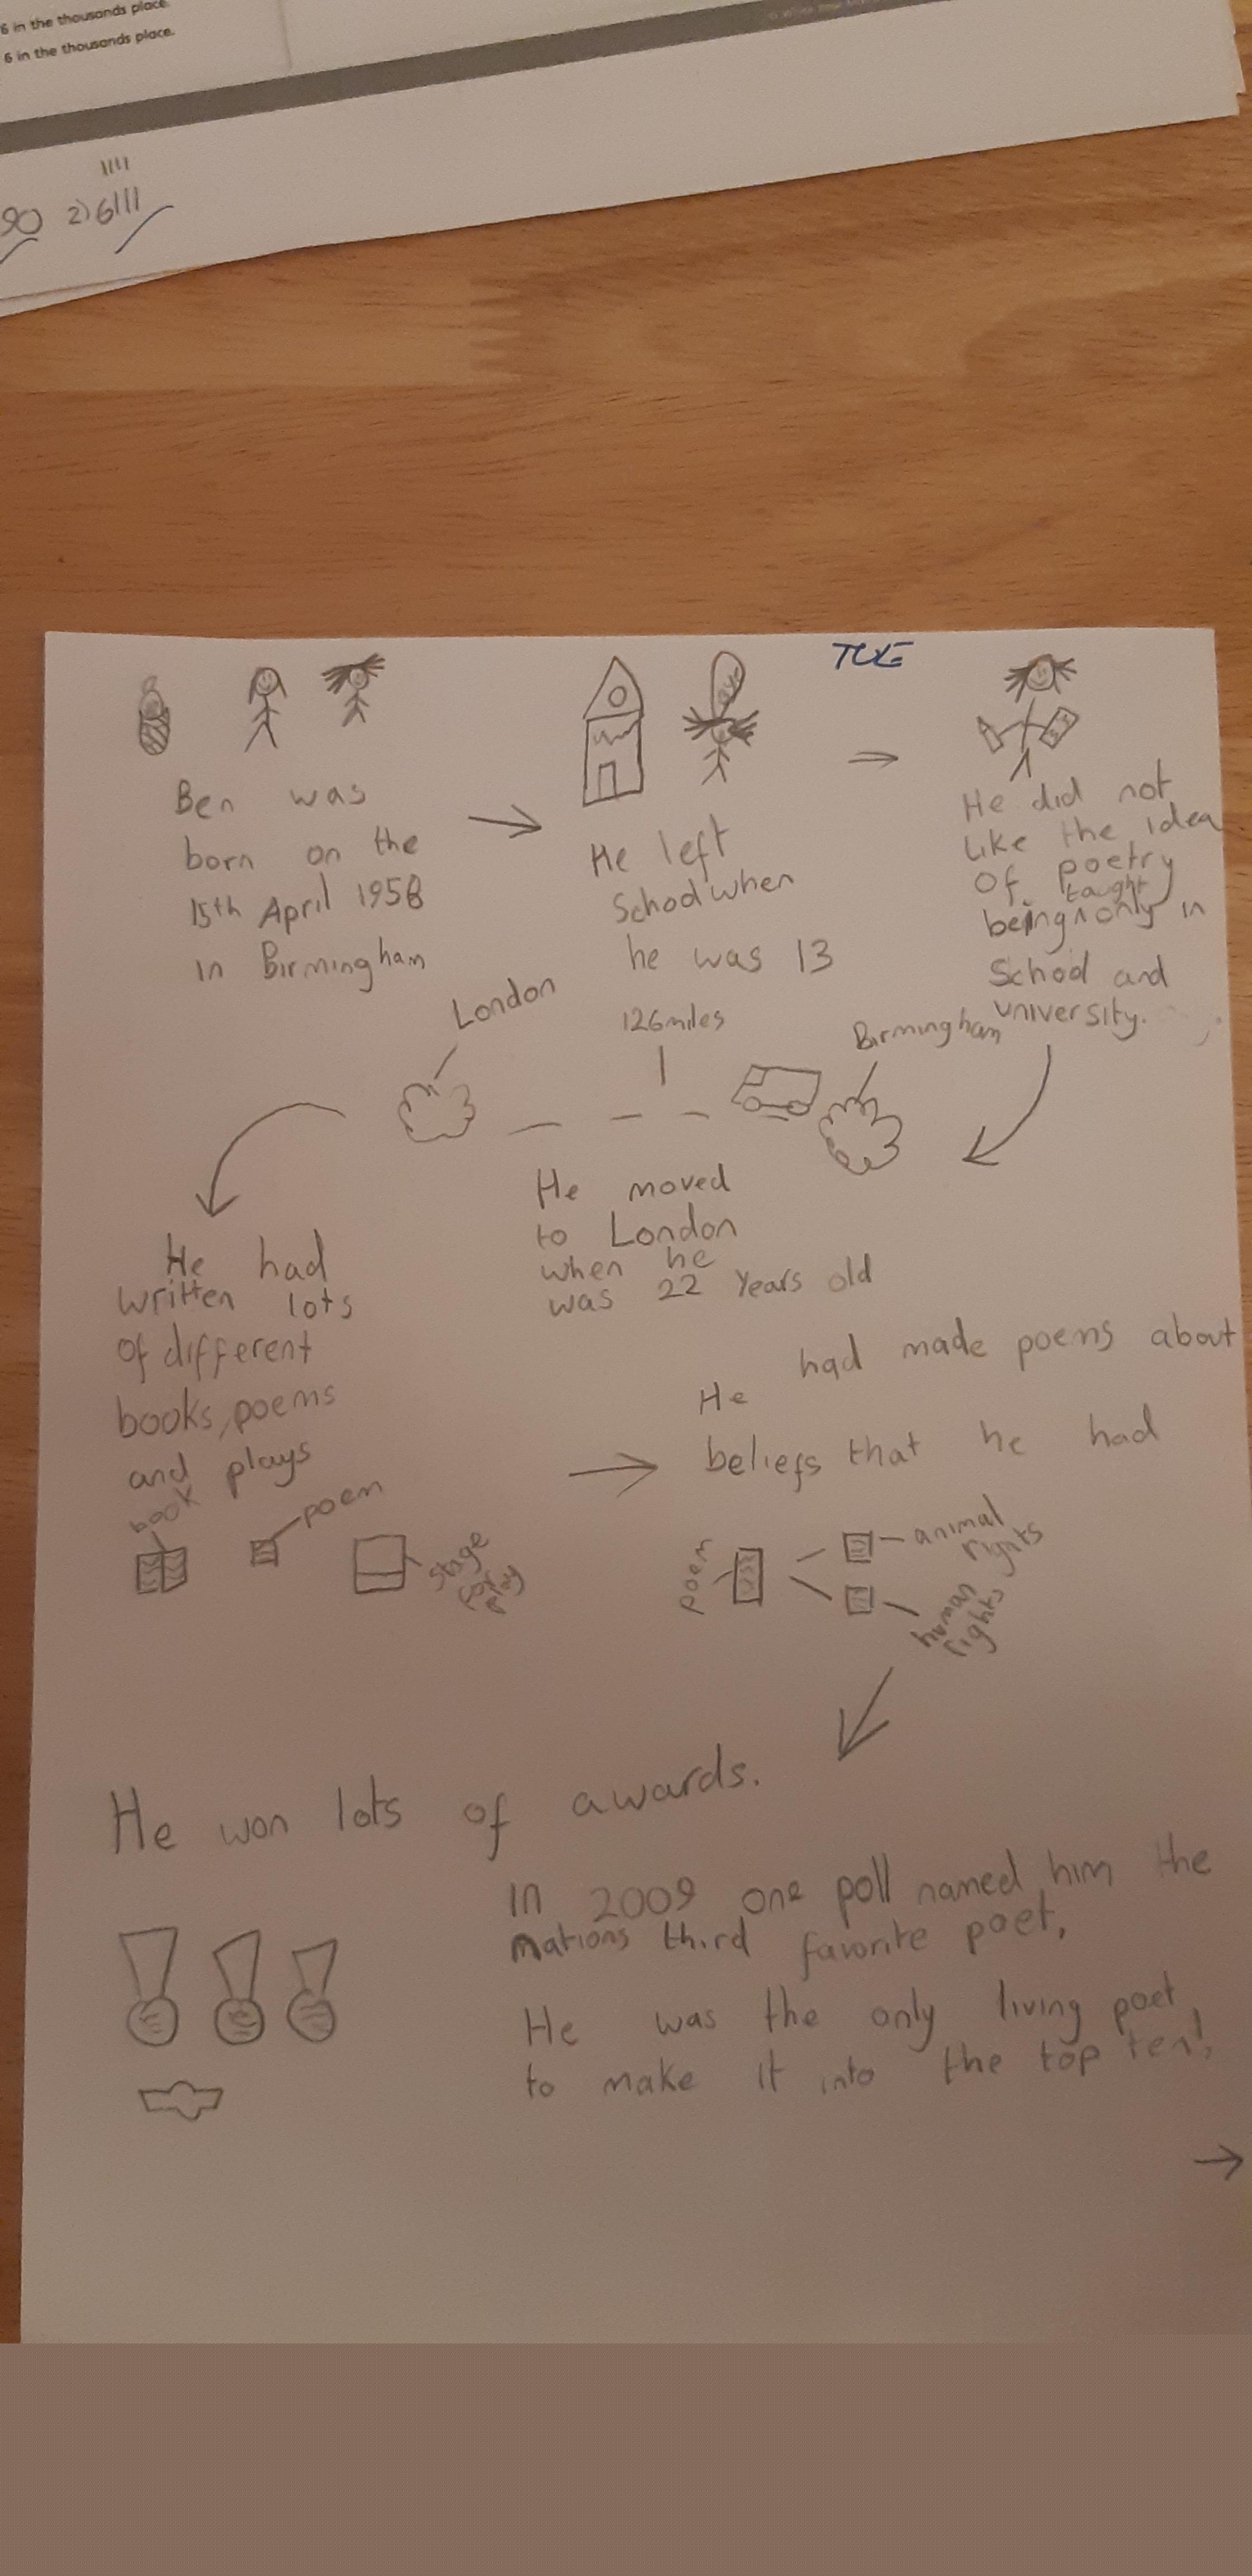 6 in the thousands place.
6 in the thousands place.
1111
90 2) 6111
TUE
Ben was
born on the
15th April 1958
in Birmingham
He left
School when
he was 13
He did not
like the idea
Of poetry
taught
being ^ only in
School and
university.
London
126 miles
Birmingham
He moved
to London
when he
was 22 years old
He had
written lots
of different
books, poems
and plays
book
poem
stage
for
play
He had made poems about
beliefs that he had
poem
animal
rights
human
rights
He won lots of awards.
In 2009 one poll named him the
nations third favorite poet,
He was the only living poet
to make it into the top ten!